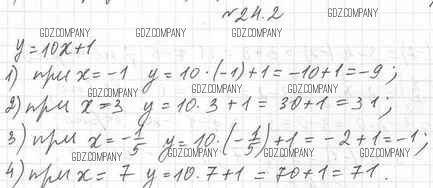 №24.2
GDZ.COMPANY
GDZ.COMPANY GDZ.COMPANY GDZ.COMPANY
y=10x+1
1) при x=-1 y=10·(-1)+1=-10+1=-9;
GDZ.COMPANY GDZ.COMPANY GDZ.COMPANY
2) при x=3 y=10·3+1=30+1=31;
3) при x=-1/5 y=10·(-1/5)+1=-2+1=-1;
GDZ.COMPANY GDZ.COMPANY GDZ.COMPANY GDZ.COMPANY
4) при x=7 y=10·7+1=70+1=71.